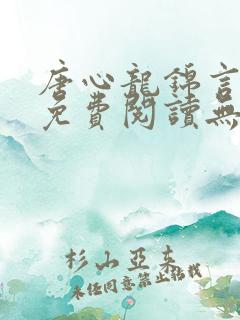 唐心龍錦言
免費閱讀無
杉山亞未
未經同意禁止轉載